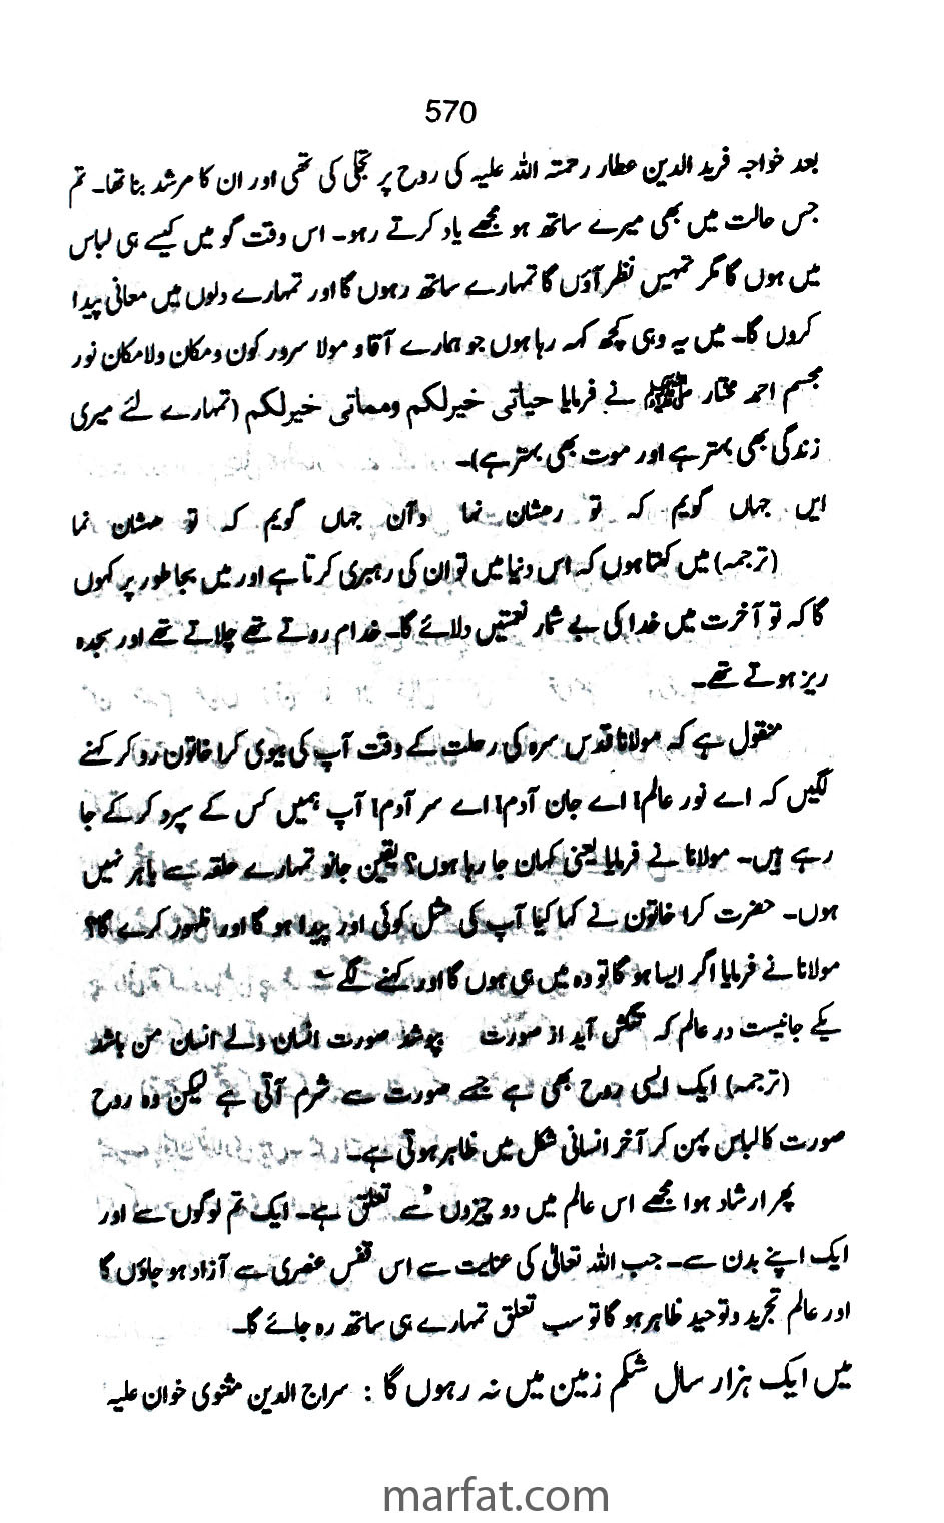 570
بعد خواجہ فرید الدین عطار رحمتہ اللہ علیہ کی روح پر تجلی کی تھی اور ان کا مرشد بنا تھا۔ تم
جس حالت میں بھی میرے ساتھ ہو مجھے یاد کرتے رہو۔ اس وقت گو میں کیسے ہی لباس
میں ہوں گا مگر تمہیں نظر آؤں گا تمہارے ساتھ رہوں گا اور تمہارے دلوں میں معانی پیدا
کروں گا۔ میں یہ وہی کچھ کہہ رہا ہوں جو ہمارے آقا و مولا سرور کون و مکان و لامکان نور
مجسم احمد مختار ﷺ نے فرمایا حیاتی خیرلکم ومماتی خیرلکم (تمہارے لئے میری
زندگی بھی بہتر ہے اور موت بھی بہتر ہے)۔
ایں جہاں گویم کہ تو رہشان نما وآن جہاں گویم کہ تو مہشان نما
(ترجمہ) میں کہتا ہوں کہ اس دنیا میں تو ان کی رہبری کرتا ہے اور میں بجا طور پر کہوں
گا کہ تو آخرت میں خدا کی بے شمار نعمتیں دلائے گا۔ خدام روتے تھے چلاتے تھے اور سجدہ
ریز ہوتے تھے۔
منقول ہے کہ مولانا قدس سرہ کی رحلت کے وقت آپ کی بیوی کرا خاتون رو کر کہنے
لگیں کہ اے نور عالم! اے جان آدم! اے سر آدم! آپ ہمیں کس کے سپرد کر کے جا
رہے ہیں۔ مولانا نے فرمایا یعنی کہاں جا رہا ہوں؟ یقین جانو تمہارے حلقہ سے باہر نہیں
ہوں۔ حضرت کرا خاتون نے کہا کیا آپ کی مثل کوئی اور پیدا ہو گا اور ظہور کرے گا؟
مولانا نے فرمایا اگر ایسا ہو گا تو وہ میں ہی ہوں گا اور کہنے لگے
یکے جانیست در عالم کہ ننگش آید از صورت بپوشد صورت انسان ولے انسان من باشد
(ترجمہ) ایک ایسی روح بھی ہے جسے صورت سے شرم آتی ہے لیکن وہ روح
صورت کا لباس پہن کر آخر انسانی شکل میں ظاہر ہوتی ہے۔
پھر ارشاد ہوا مجھے اس عالم میں دو چیزوں سے تعلق ہے۔ ایک تم لوگوں سے اور
ایک اپنے بدن سے۔ جب اللہ تعالیٰ کی عنایت سے اس قفس عنصری سے آزاد ہو جاؤں گا
اور عالم تجرید و توحید ظاہر ہو گا تو سب تعلق تمہارے ہی ساتھ رہ جائے گا۔
میں ایک ہزار سال شکم زمین میں نہ رہوں گا : سراج الدین مثنوی خوان علیہ
marfat.com